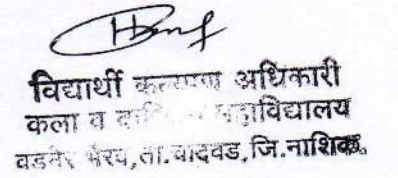 विद्यार्थी कल्याण अधिकारी
कला व महाविद्यालय
वडनेर भैरव,ता.चादवड,जि.नाशिक.